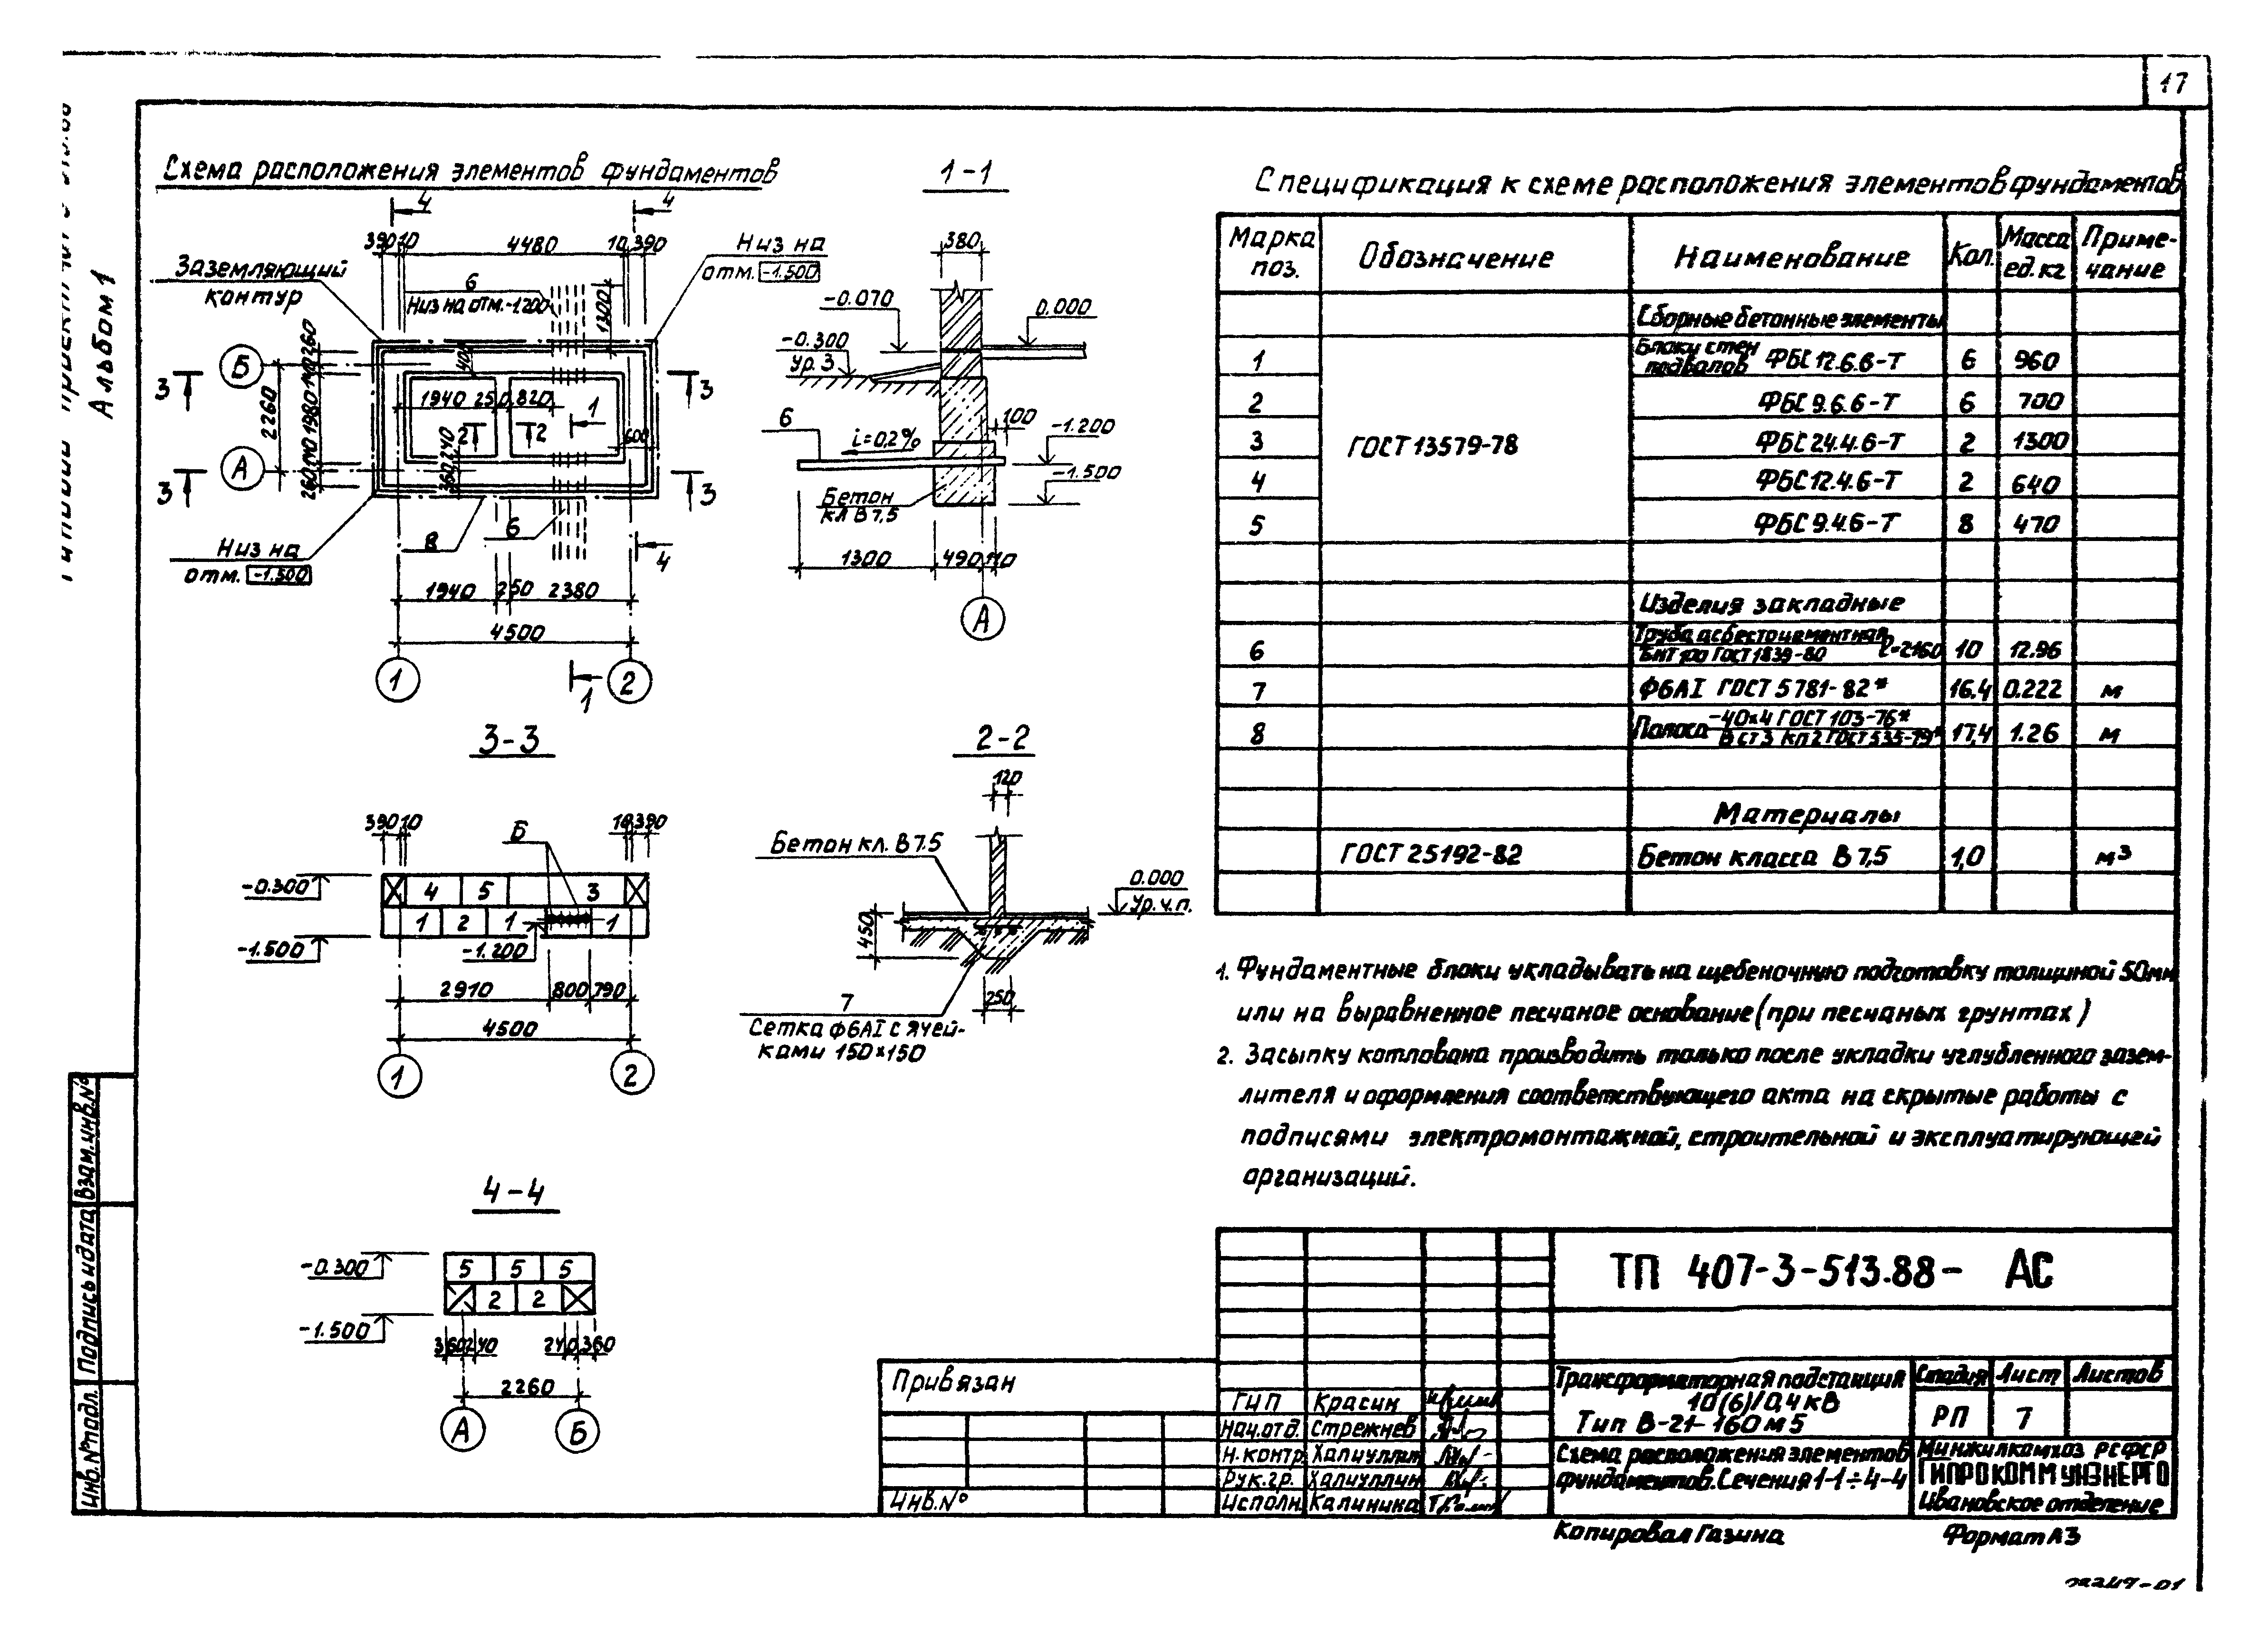 17
Альбом 1
Схема расположения элементов фундаментов
4 4
390 10 4480 10 390
Заземляющий
контур
Низ на
отм. -1.500
6
Низ на отм. -1.200
1300
400
Б
А
3 3
3 3
2260
260 140 1980 140 260
1940 250 820
1
2 2
600
360 240
8
6
Низ на
отм. -1.500
4
1940 250 2380
4500
1 2
1
1-1
380
-0.070
0.000
-0.300
Ур. З
6
i=0,2%
100
-1.200
-1.500
Бетон
кл В 7,5
1300 490 110
А
3-3
390 10 10 390
Б
-0.300
4 5 3
1 2 1 1
-1.500
-1.200
2910 800 790
4500
1 2
2-2
120
Бетон кл. В 7.5
0.000
Ур. ч. п.
450
7
250
Сетка ф6АI с ячей-
ками 150×150
4-4
-0.300
5 5 5
2 2
-1.500
360 240 240 360
2260
А Б
Спецификация к схеме расположения элементов фундаментов
Марка поз. Обозначение Наименование Кол. Масса ед. кг Приме-чание
Сборные бетонные элементы
1 Блоки стен подвалов ФБС 12.6.6-Т 6 960
2 ФБС 9.6.6-Т 6 700
3 ГОСТ 13579-78 ФБС 24.4.6-Т 2 1300
4 ФБС 12.4.6-Т 2 640
5 ФБС 9.4.6-Т 8 470
Изделия закладные
6 Труба асбестоцементная БНТ 100 ГОСТ 1839-80 ℓ=2160 10 12.96
7 Ф6АI ГОСТ 5781-82* 16.4 0.222 м
8 Полоса -40×4 ГОСТ 103-76* В ст 3 кп 2 ГОСТ 535-79* 17,4 1.26 м
Материалы
ГОСТ 25192-82 Бетон класса В 7,5 1,0 м³
1. Фундаментные блоки укладывать на щебеночную подготовку толщиной 50мм
или на выравненное песчаное основание (при песчаных грунтах)
2. Засыпку котлована производить только после укладки углубленного зазем-
лителя и оформления соответствующего акта на скрытые работы с
подписями электромонтажной, строительной и эксплуатирующей
организаций.
ТП 407-3-513.88- АС
Привязан
Инв. №
ГИП Красин
Нач. отд. Стрежнев
Н. контр. Халиуллин
Рук. гр. Халиуллин
Исполн. Калинина
Трансформаторная подстанция
10(6)/0,4 кВ
Тип В-21-160 м5
Стадия Лист Листов
РП 7
Схема расположения элементов
фундаментов. Сечения 1-1÷4-4
Минжилкомхоз РСФСР
ГИПРОКОММУНЭНЕРГО
Ивановское отделение
Копировал Газина
Формат А3
Взам. инв. №
Подпись и дата
Инв. № подл.